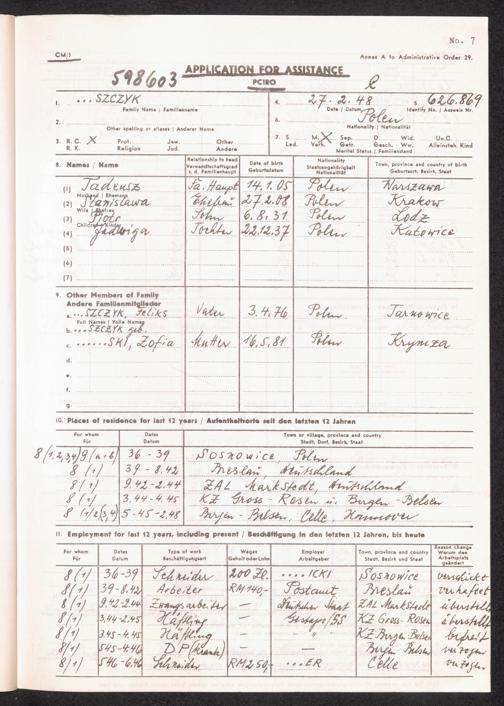 No. 7
CM/1
Annex A to Administrative Order 29.
598603 APPLICATION FOR ASSISTANCE
PCIRO
1. ...SZCZYK 4. 27. 2. 48 5. 626.869
Family Name / Familienname Date / Datum Identity No. / Ausweis Nr.
2. 6. Polen
Other spelling or aliases / Anderer Name Nationality / Nationalität
3. R. C. X Prot. Jew. Other 7. S M. X Sep. D. Wid. Un.C.
R. K. Religion Jud. Andere Led. Verh. Getr. Gesch. Ww. Alleinsteh. Kind
Marital Status / Familienstand
8. Names / Name Relationship to head Verwandtschaftsgrad z. d. Familienhaupt Date of birth Geburtsdatum Nationality Staatsangehörigkeit Nationalität Town, province and country of birth Geburtsort, Bezirk, Staat
(1) Tadeusz Fa. Haupt 14. 1. 05 Polen Warszawa
Husband / Ehemann
(2) Stanislawa Ehefrau 27.2.08 Polen Krakow
Wife / Ehefrau
(3) Piotr Sohn 6. 8. 31 Polen Lodz
(4) Jadwiga Tochter 22.12.37 Polen Katowice
(5)
(6)
(7)
9. Other Members of Family
Andere Familienmitglieder
a. ...SZCZYK, Feliks Vater 3. 4. 76 Polen Tarnowice
Full Names / Volle Namen
b. ...SZCZYK geb.
c. ......SKI, Zofia Mutter 16. 5. 81 Polen
d.
e.
f.
g.
10. Places of residence for last 12 years / Aufenthaltsorte seit den letzten 12 Jahren
For whom Für Dates Datum Town or village, province and country Stadt, Dorf, Bezirk, Staat
8 (1,2,3,4) 9 36 - 39 Sosnowice, Polen
8 (1) 39 - 8.42 Breslau, Deutschland
8 (1) 9.42 - 2.44 ZAL Markstedt, Deutschland
8 (1) 3.44 - 4.45 KZ Gross - Rosen u. Bergen - Belsen
8 (1) 2(3,4) 5-45-2.48 Bergen - Belsen, Celle, Hannover
11. Employment for last 12 years, including present / Beschäftigung in den letzten 12 Jahren, bis heute
For whom Für Dates Datum Type of work Beschäftigungsart Wages Gehalt oder Lohn Employer Arbeitgeber Town, province and country Stadt, Bezirk, Staat Reason change Warum den Arbeitsplatz geändert
8 (1) 36-39 Schneider 200 Zl. ....ICKI Sosnowice verschickt
8 (1) 39-8.42 Arbeiter RM 140,- Postamt Breslau verhaftet
8 (1) 9.42-2.44 Zwangsarbeiter — Deutscher Staat ZAL Markstedt überstellt
8 (1) 3.44-2.45 Häftling — Gestapo/SS KZ Gross-Rosen überstellt
8 (1) 3.45-4.45 Häftling — " KZ Bergen Belsen befreit
8 (1) 5.45-4.46 DP (Krank) — — Bergen Belsen verzogen
8 (1) 5.46-6.46 Schneider RM 250,- ...ER Celle verzogen